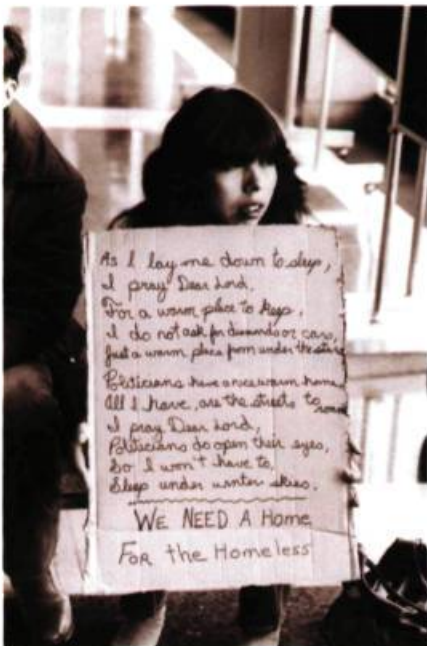 As I lay me down to sleep,
I pray Dear Lord,
For a warm place to keep,
I do not ask for diamonds or cars,
Just a warm place from under the stars
Politicians have a nice warm home
All I have, are the streets to roam
I pray Dear Lord,
Politicians do open their eyes,
So I won't have to,
Sleep under winter skies.
WE NEED A Home
FOR the Homeless